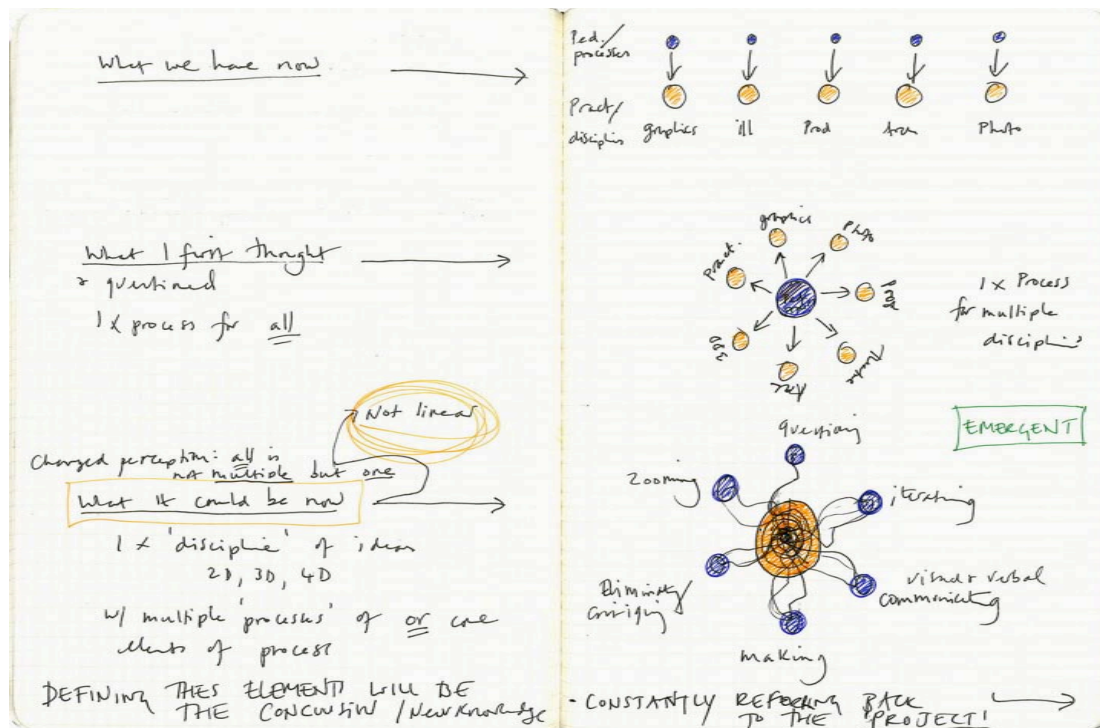 What we have now
What I first thought
& questioned
1 x process for all
Not linear
Changed perception: all is
not multiple but one
What it could be now
1 x 'discipline' of ideas
2D, 3D, 4D
w/ multiple 'processes' of or core
elements of process
DEFINING THES ELEMENTS WILL BE
THE CONCLUSION / New Knowledge
Ped./
processes
Pract/
disciplins
graphics ill Prod Arch Photo
graphics
Photo
Pract.
Arc
1 x Process
for multiple
disciplins
EMERGENT
questioning
Zooming
iterating
Eliminating/
Critiquing
visual + verbal
communicating
making
- CONSTANTLY REFERRING BACK
TO THE PROJECT!